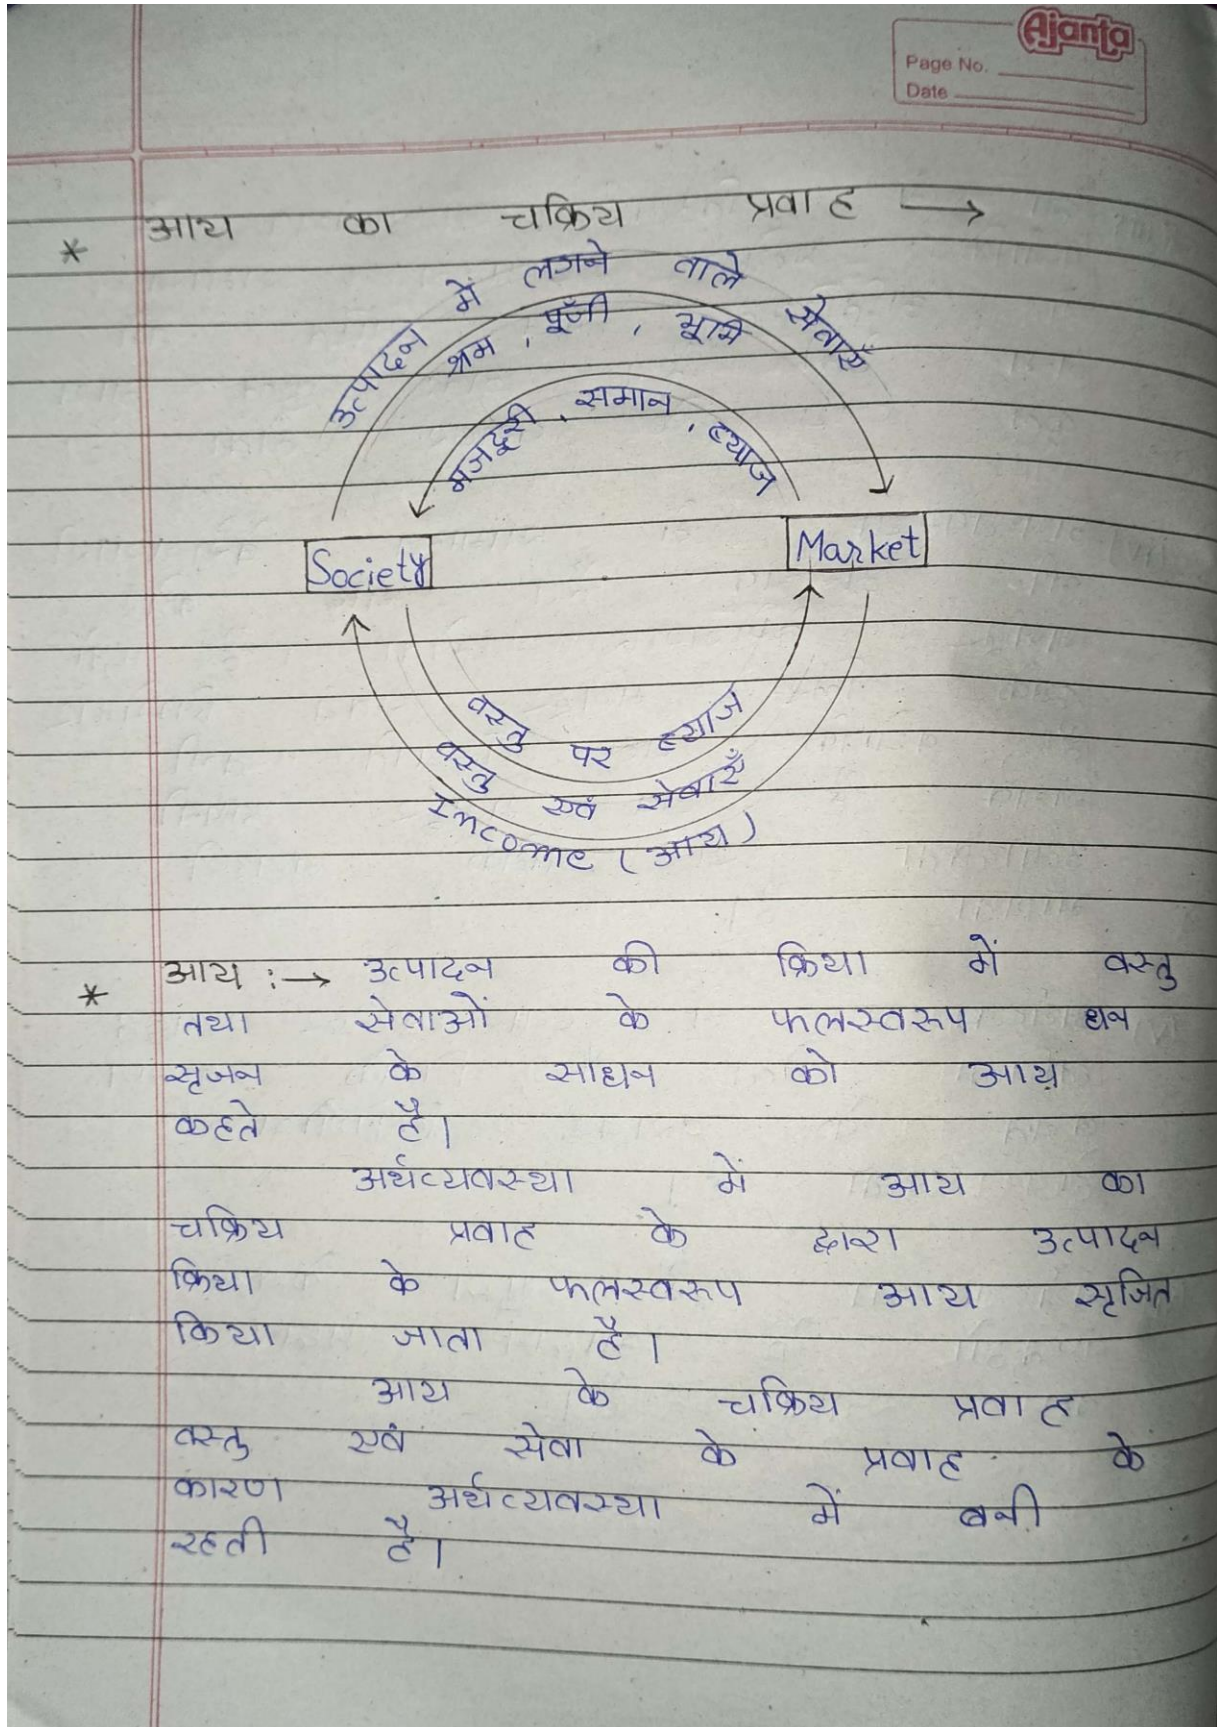 Ajanta
Page No.
Date
* आय का चक्रिय प्रवाह →
उत्पादन में लगने वाले सेवाएँ
श्रम, पूँजी, भूमि
मजदूरी, समान, ब्याज
Society
Market
वस्तु पर ब्याज
वस्तु एवं सेवाएँ
Income (आय)
* आय :→ उत्पादन की क्रिया में वस्तु
तथा सेवाओं के फलस्वरूप धन
सृजन के साधन को आय
कहते है।
अर्थव्यवस्था में आय का
चक्रिय प्रवाह के द्वारा उत्पादन
क्रिया के फलस्वरूप आय सृजित
किया जाता है।
आय के चक्रिय प्रवाह
वस्तु एवं सेवा के प्रवाह के
कारण अर्थव्यवस्था में बनी
रहती है।